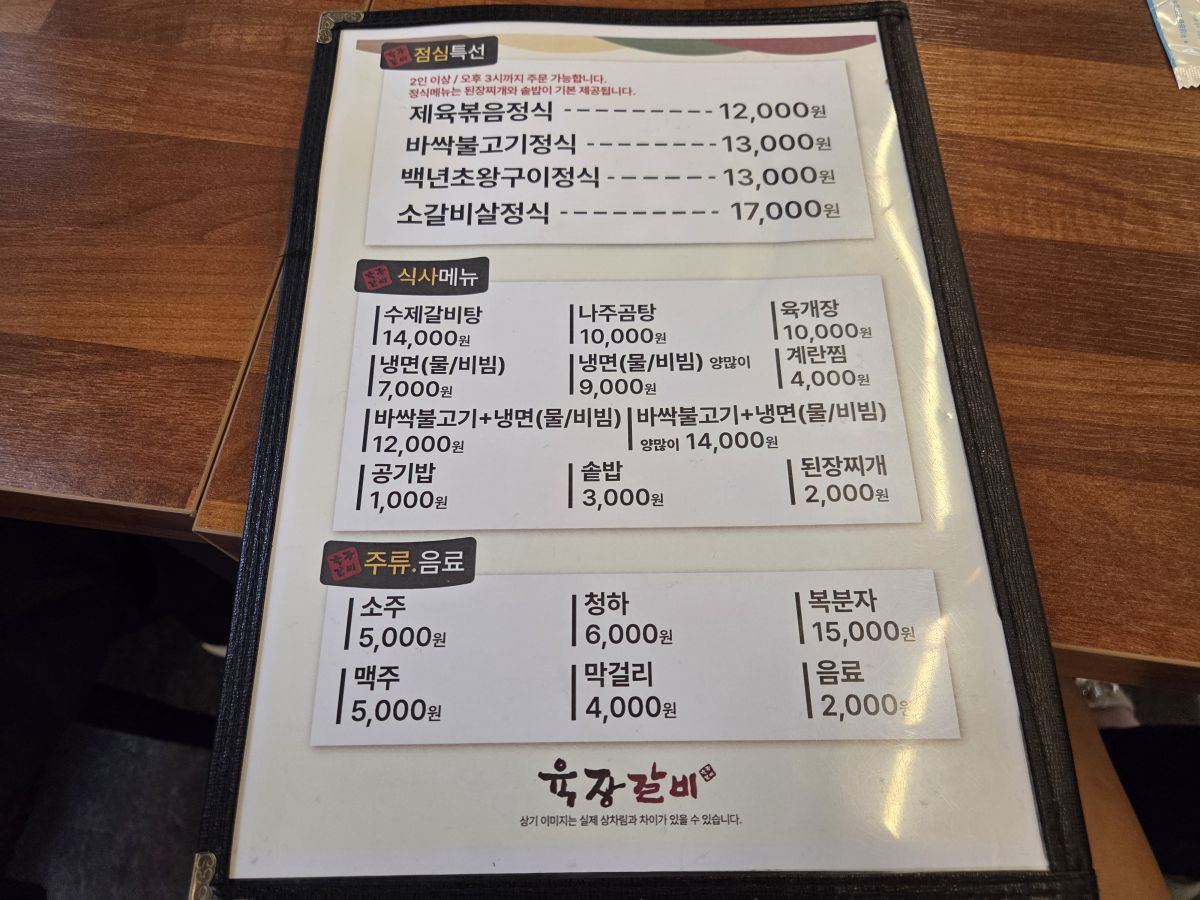 점심특선
2인 이상 / 오후 3시까지 주문 가능합니다.
정식메뉴는 된장찌개와 솥밥이 기본 제공됩니다.
제육볶음정식 --------- 12,000원
바싹불고기정식 -------- 13,000원
백년초왕구이정식 ------- 13,000원
소갈비살정식 --------- 17,000원
식사메뉴
수제갈비탕 나주곰탕 육개장
14,000원 10,000원 10,000원
냉면(물/비빔) 냉면(물/비빔) 양많이 계란찜
7,000원 9,000원 4,000원
바싹불고기+냉면(물/비빔) 바싹불고기+냉면(물/비빔)
12,000원 양많이 14,000원
공기밥 솥밥 된장찌개
1,000원 3,000원 2,000원
주류.음료
소주 청하 복분자
5,000원 6,000원 15,000원
맥주 막걸리 음료
5,000원 4,000원 2,000원
육장갈비
상기 이미지는 실제 상차림과 차이가 있을 수 있습니다.